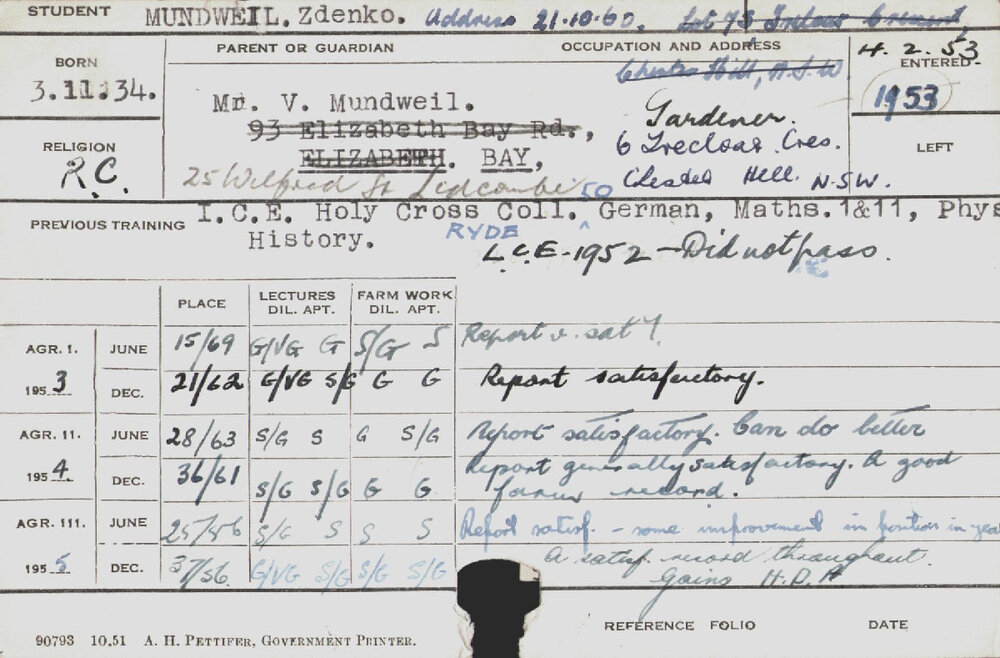 STUDENT MUNDWEIL. Zdenko. Address 21.10.60.
PARENT OR GUARDIAN OCCUPATION AND ADDRESS 4. 2. 53
BORN Chester Hill, N.S.W ENTERED
3.11.34. Mr. V. Mundweil. Gardener. 1953
93 Elizabeth Bay Rd.,
RELIGION ELIZABETH. BAY, 6 Cres. LEFT
R.C. 25 Wilfred St Lidcombe Chester Hill. N.S.W.
PREVIOUS TRAINING I.C.E. Holy Cross Coll. 50 German, Maths.1&11, Phys
History. RYDE L.C.E. 1952 - Did not pass.
PLACE LECTURES DIL. APT. FARM WORK DIL. APT.
AGR. I. JUNE 15/69 G/VG G S/G S Report v. sat y.
1953 DEC. 21/62 G/VG S/G G G Report satisfactory.
AGR. 11. JUNE 28/63 S/G S G S/G Report satisfactory. Can do better
1954 DEC. 36/61 S/G S/G G G Report generally satisfactory. A good
farm record.
AGR. 111. JUNE 25/56 S/G S S S Report satisf. - some improvement in position in year
1955 DEC. 37/56. G/VG S/G S/G S/G A satisf. record throughout.
Gains H.D.A
REFERENCE FOLIO DATE
90793 10.51 A. H. PETTIFER, GOVERNMENT PRINTER.